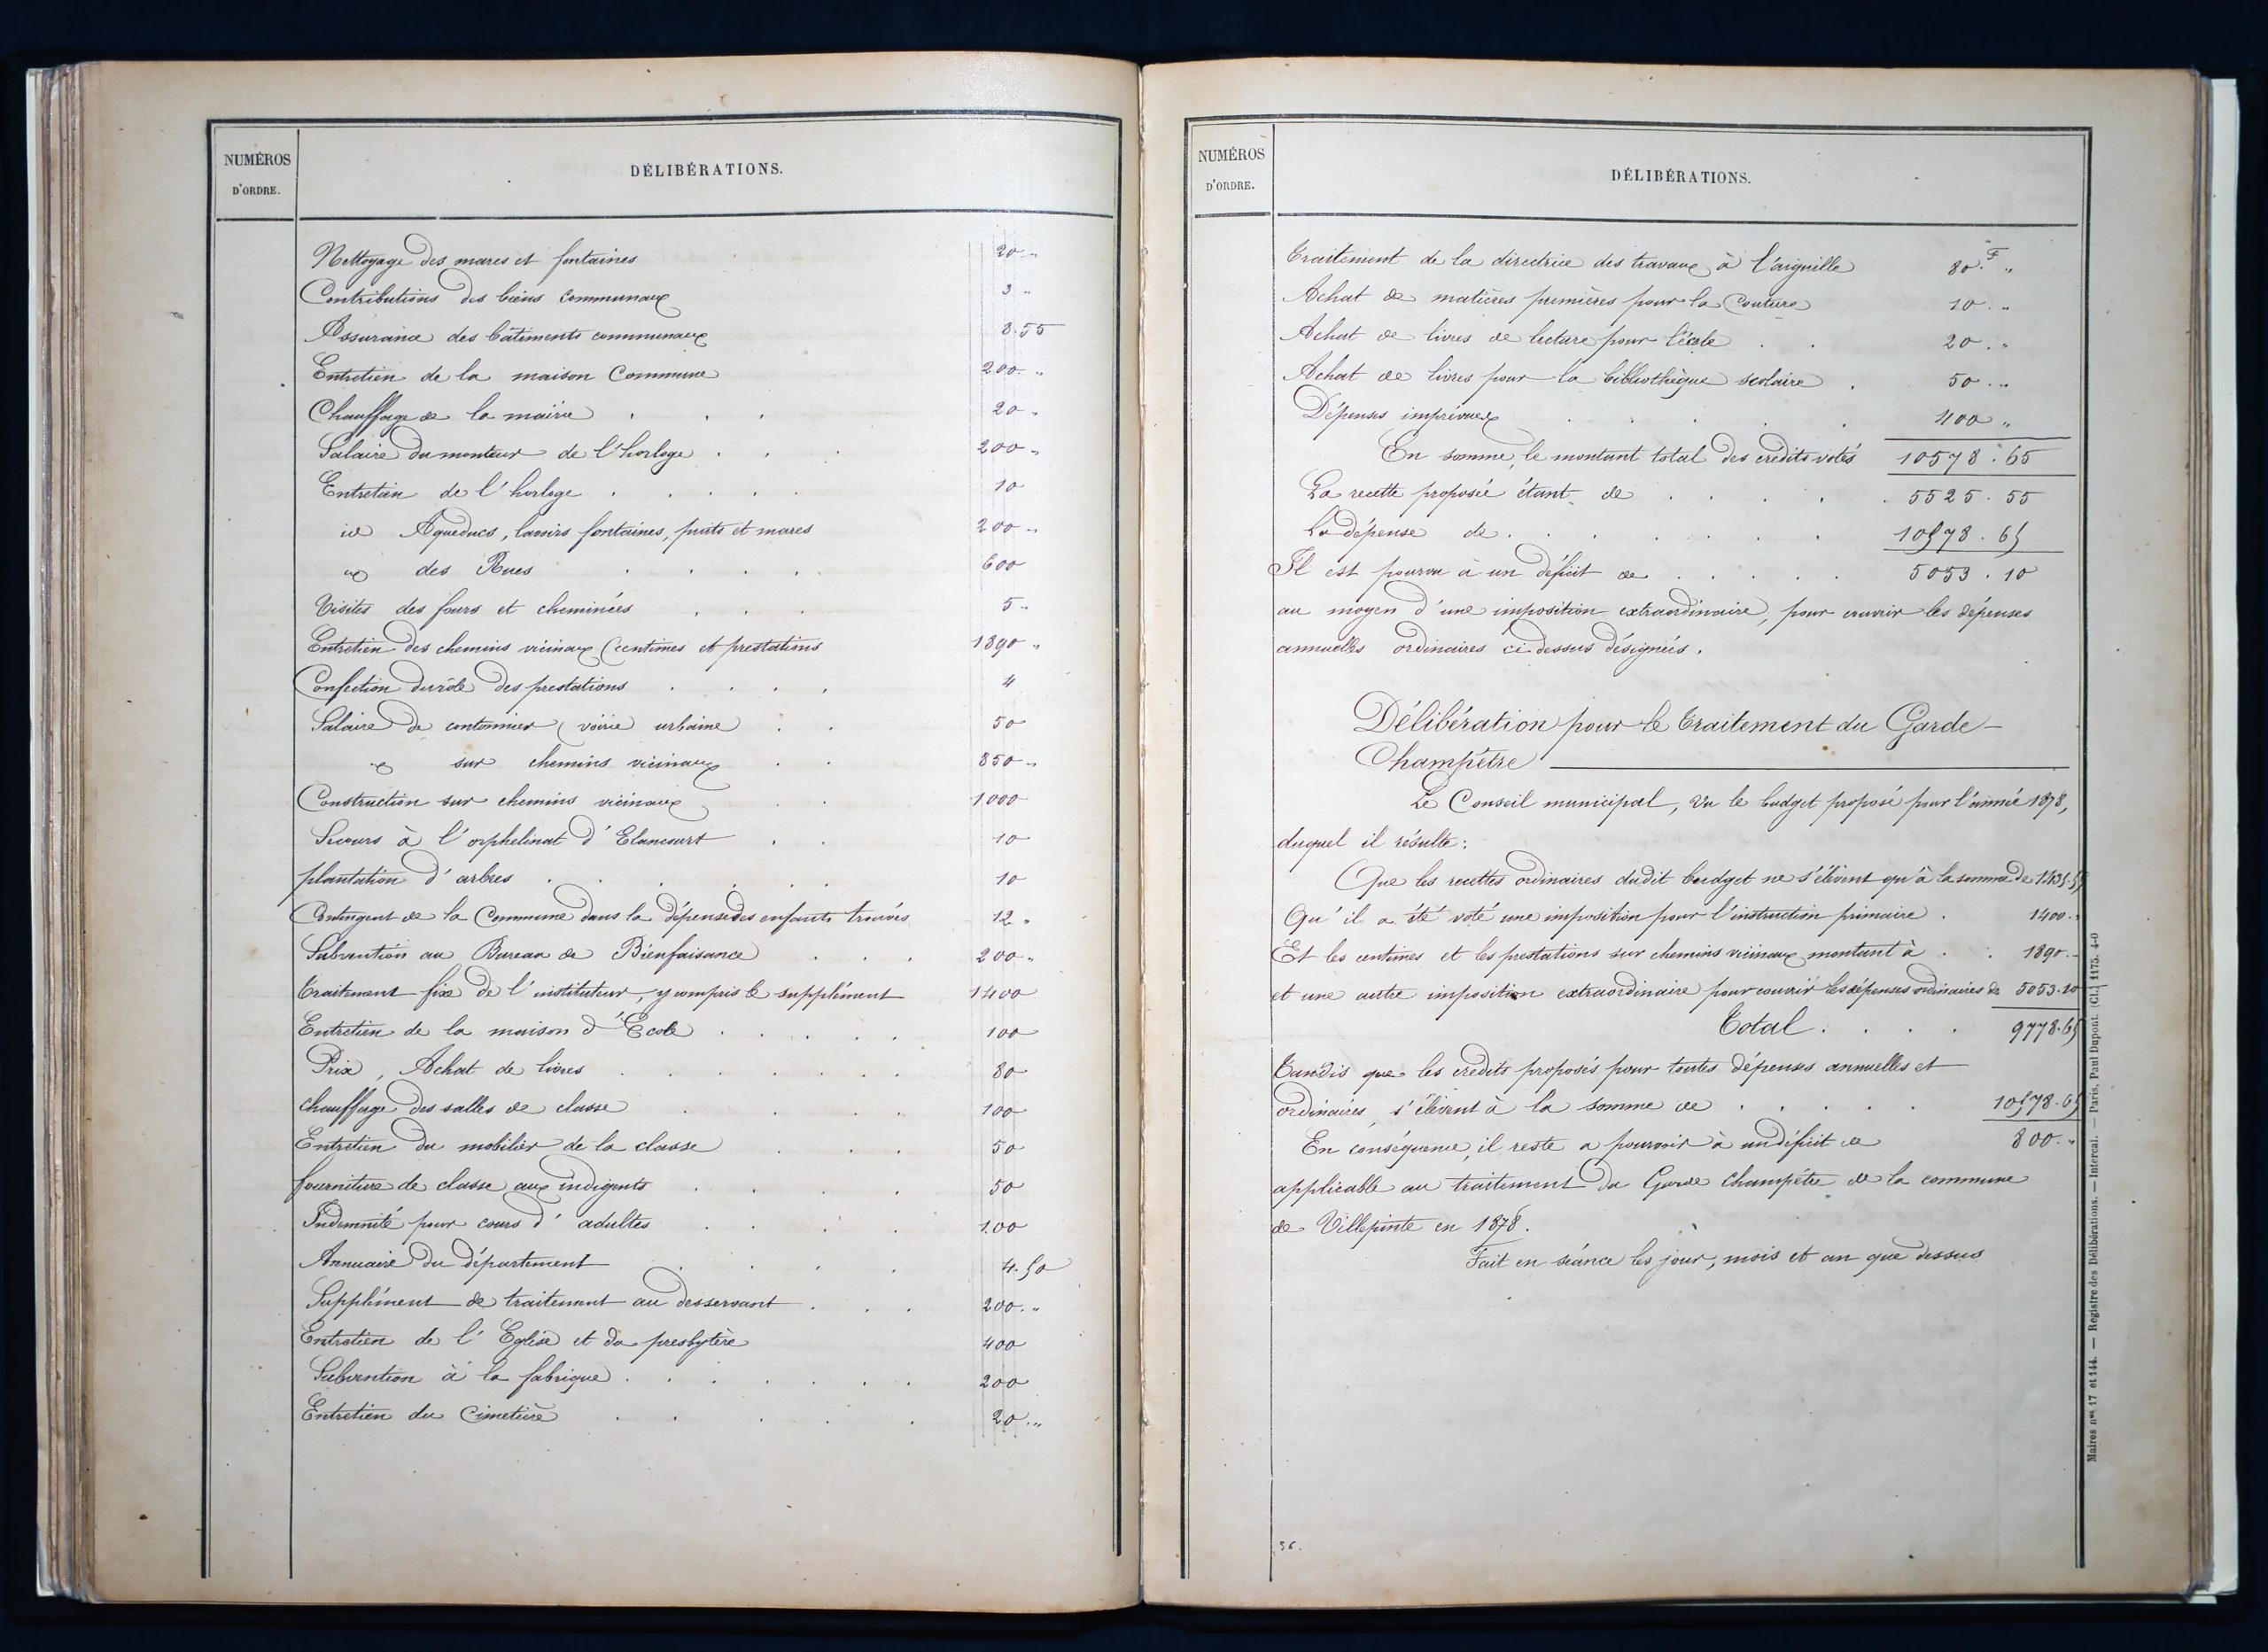 NUMÉROS
D'ORDRE.
DÉLIBÉRATIONS.
Nettoyage des mares et fontaines 20 "
Contributions des biens communaux 3 "
Assurance des bâtiments communaux 8.55
Entretien de la maison Commune 200 "
Chauffage de la mairie . . . 20 "
Salaire du monteur de l'horloge . . . 200 "
Entretien de l'horloge . . . . . 10
id Aqueducs, lavoirs fontaines, puits et mares 200 "
des Rues . . . . 600
Visites des fours et cheminées . . . 5 "
Entretien des chemins vicinaux (centimes et prestations 1890 "
Confection du rôle des prestations . . . . 4
Salaire de cantonnier (voirie urbaine . . 50
sur chemins vicinaux . . 850 "
Construction sur chemins vicinaux . . 1000
Secours à l'orphelinat d'Elancourt . . 10
plantation d'arbres . . . . . 10
Contingent de la Commune dans la dépense des enfants trouvés 12 "
Subvention au Bureau de Bienfaisance . . . 200 "
Traitement fixe de l'instituteur, y compris le supplément 1400
Entretien de la maison d'Ecole . . . . . 100
Prix, Achat de livres . . . . . . 80
chauffage des salles de classe . . . . 100
Entretien du mobilier de la classe . . . 50
fourniture de classe aux indigents . . . . 50
Indemnité pour cours d'adultes . . . . 100
Annuaire du département . . . . 4.50
Supplément de traitement au desservant . . . 200. "
Entretien de l'Eglise et du presbytère 400
Subvention à la fabrique . . . . . . 200
Entretien du Cimetière . . . . . 20. "
NUMÉROS
D'ORDRE.
DÉLIBÉRATIONS.
Traitement de la directrice des travaux à l'aiguille 80.F "
Achat de matières premières pour la Couture 10. "
Achat de livres de lecture pour l'école . . 20. "
Achat de livres pour la bibliothèque scolaire . 50. "
Dépenses imprévues . . . . . 400 "
En somme, le montant total des crédits votés 10578.65
La recette proposée étant de . . . . . 5525.55
La dépense de . . . . . . 10578.65
Il est pourvu à un déficit de . . . . . 5053.10
au moyen d'une imposition extraordinaire, pour couvrir les dépenses
annuelles ordinaires ci-dessus désignées.
Délibération pour le Traitement du Garde-
Champêtre
Le Conseil municipal, Vu le budget proposé pour l'année 1878,
duquel il résulte:
Que les recettes ordinaires dudit budget ne s'élèvent qu'à la somme de 1435.55
Qu'il a été voté une imposition pour l'instruction primaire . 1400. "
Et les centimes et les prestations sur chemins vicinaux montant à . . 1890. "
et une autre imposition extraordinaire pour couvrir les dépenses ordinaires de 5053.10
Total . . . . 9778.65
Tandis que les crédits proposés pour toutes dépenses annuelles et
ordinaires, s'élèvent à la somme de . . . . . 10578.65
En conséquence, il reste a pourvoir à un déficit de 800. "
applicable au traitement du Garde Champêtre de la commune
de Villepinte en 1878.
Fait en séance les jour, mois et an que dessus
36.
Maires nos 17 et 144. — Registre des Délibérations. — Intercal. — Paris, Paul Dupont. (Cl.) 1175. 4-0